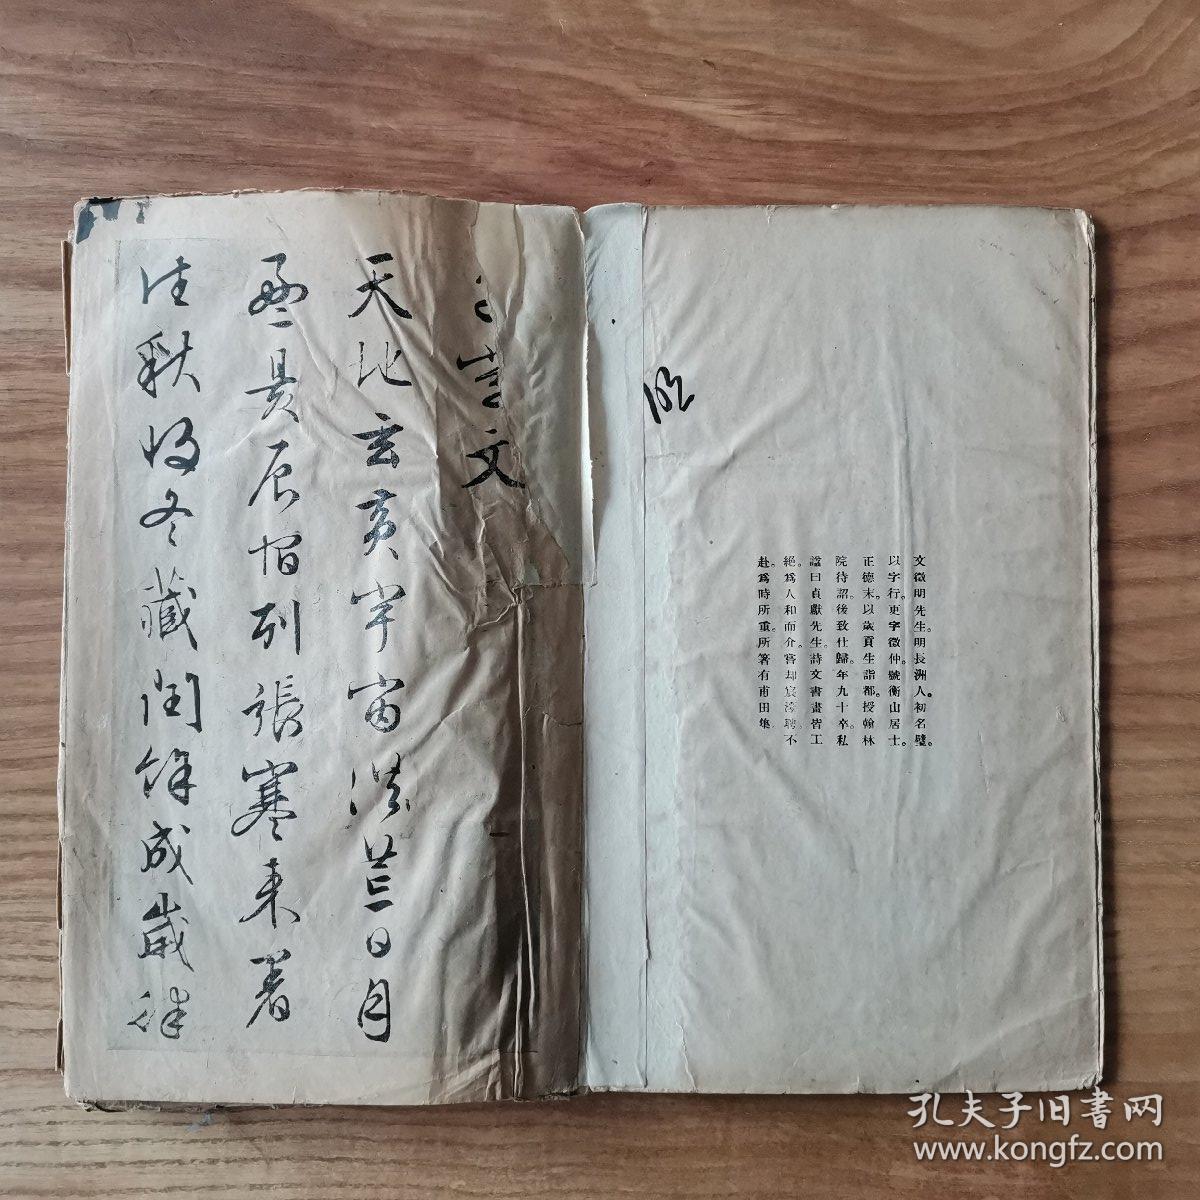 文徵明先生。明長洲人。初名璧。
以字行。更字徵仲。號衡山居士。
正德末。以歲貢生詣都。授翰林
院待詔。後致仕歸。年九十卒。私
諡曰貞獻先生。詩文書畫皆工
絕。爲人和而介。嘗却宸濠聘。不
赴。爲時所重。所箸有甫田集。
文
天地玄黃宇宙洪荒日月
盈昃辰宿列張寒來暑
往秋收冬藏閏餘成歲律
孔夫子旧書网
www.kongfz.com